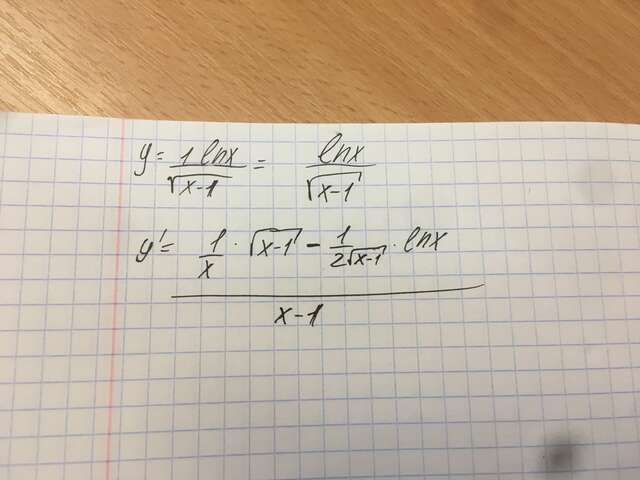 y = 1 lnx / √x-1 = lnx / √x-1
y' = 1/x · √x-1 - 1/2√x-1 · lnx
x-1